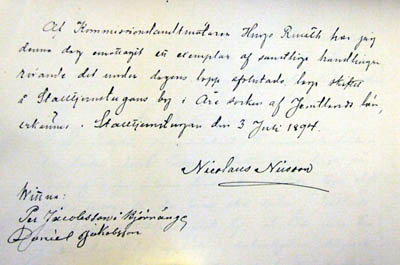 Af Kommissionslandtmätaren Hugo Rmäth har jag
denna dag emottagit ett exemplar af samtliga handlingar
rörande det under dagens lopp afslutade laga skiftet
å Stalltjernstugans by i Åre socken af Jemtlands län,
erkännes. Stalltjernstugan den 3 Juli 1894.
Nicolaus Nilsson
Wittna:
Per Jacobsson i Björnänge
Daniel Jakobsson